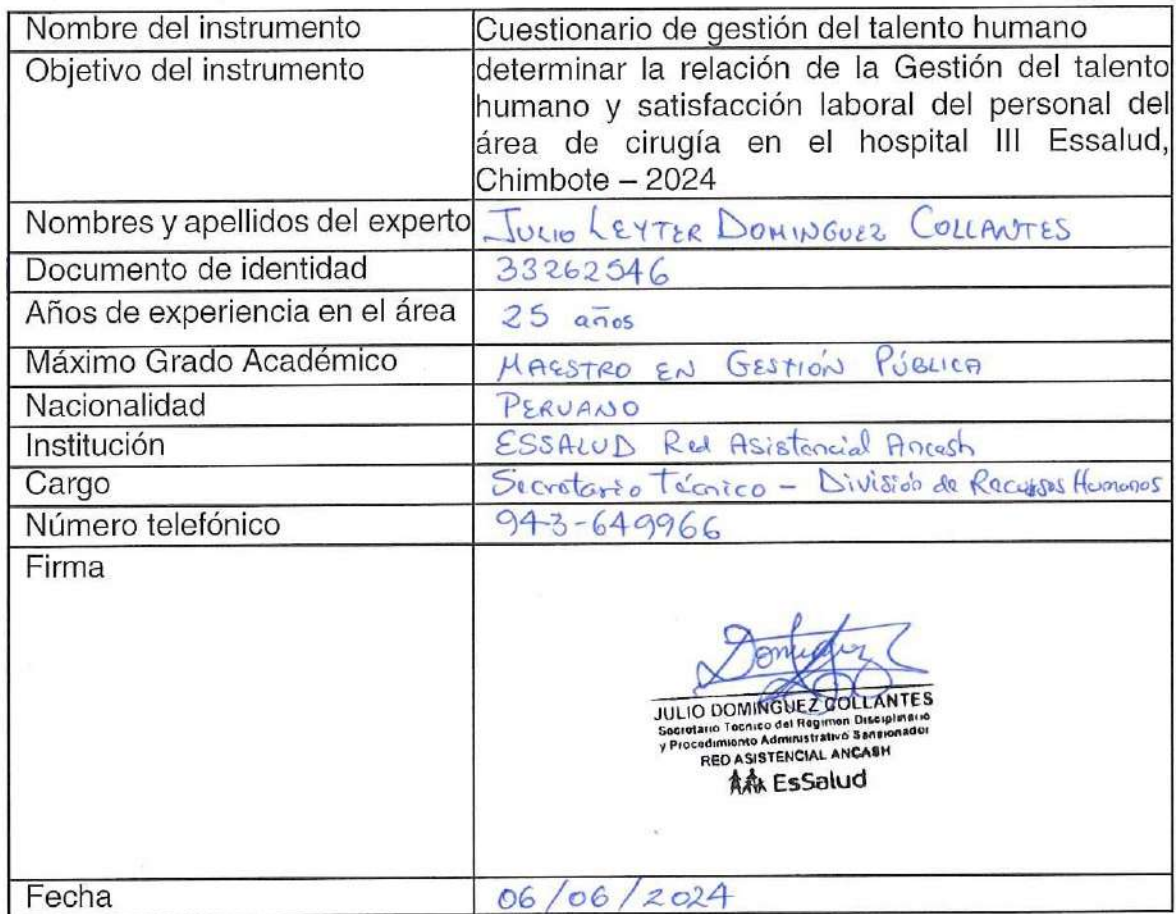 Nombre del instrumento
Cuestionario de gestión del talento humano
Objetivo del instrumento
determinar la relación de la Gestión del talento
humano y satisfacción laboral del personal del
área de cirugía en el hospital III Essalud,
Chimbote – 2024
Nombres y apellidos del experto
JULIO LEYTER DOMINGUEZ COLLANTES
Documento de identidad
33262546
Años de experiencia en el área
25 años
Máximo Grado Académico
MAESTRO EN GESTIÓN PÚBLICA
Nacionalidad
PERUANO
Institución
ESSALUD Red Asistencial Ancash
Cargo
Secretario Técnico – División de Recursos Humanos
Número telefónico
943-649966
Firma
JULIO DOMINGUEZ COLLANTES
Secretario Tecnico del Regimen Disciplinario
y Procedimiento Administrativo Sansionador
RED ASISTENCIAL ANCASH
EsSalud
Fecha
06/06/2024